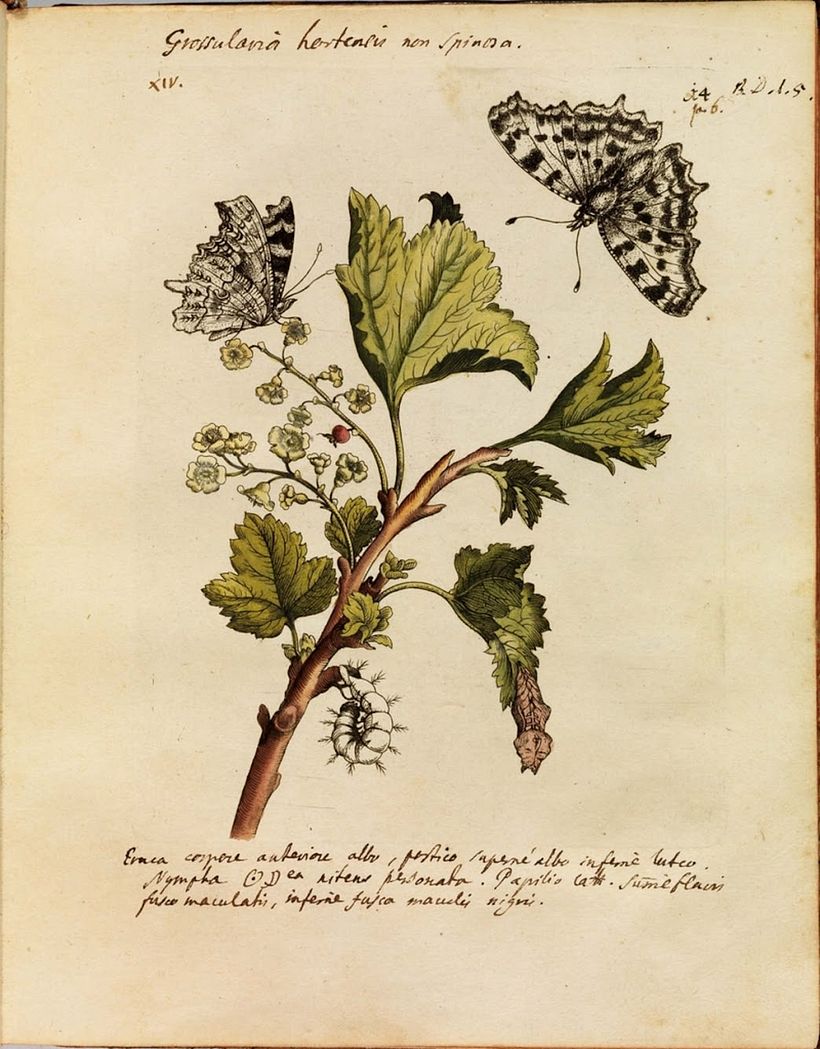 Grossularia hortensis non Spinosa.
XIV.
R. D. 1. 5.
p. 6.
Eruca corpore anteriore albo, postico superné albo inferné luteo.
Nympha ea nitens personata. Papilio flavis
fusco maculatis, inferné fusca maculis nigris.